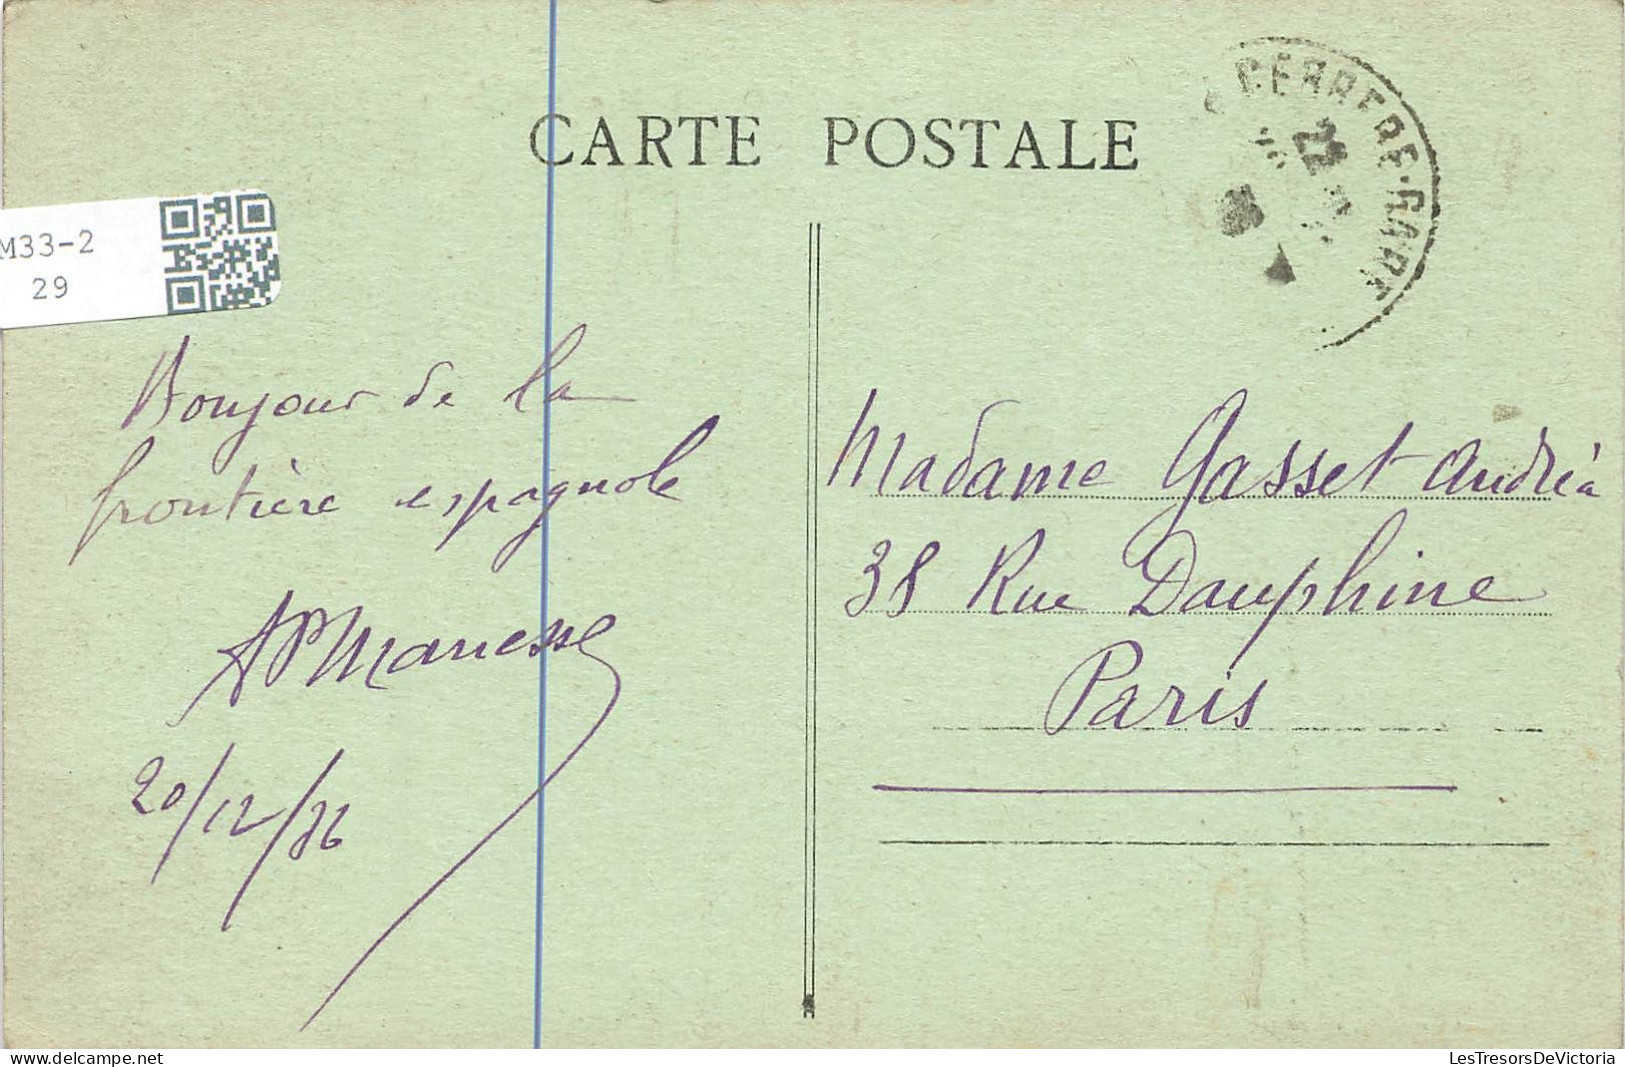 CARTE POSTALE
CERBERE-GARE
22
M33-2
29
Bonjour de la
frontière espagnole
APManesse
20/12/36
Madame Gasset Andréa
38 Rue Dauphine
Paris
LesTresorsDeVictoria
delcampe.net